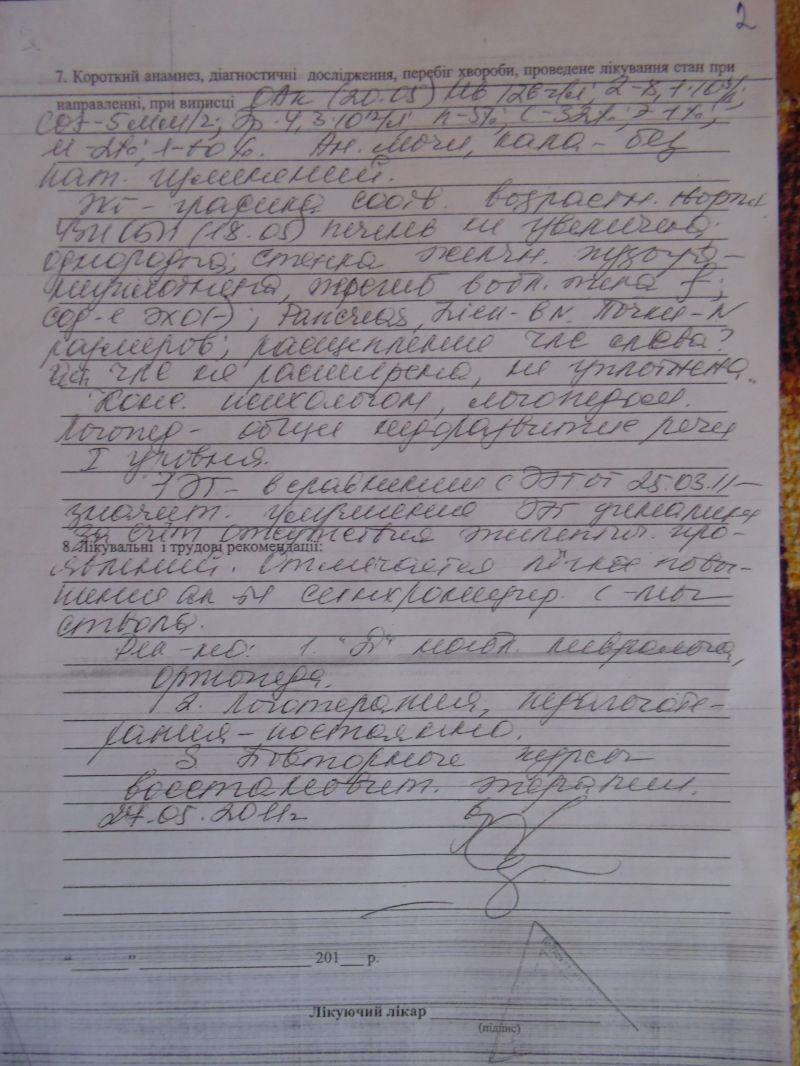 2
7. Короткий анамнез, діагностичні дослідження, перебіг хвороби, проведене лікування стан при
направленні, при виписці ОАк (20.05) Hb 126 г/л;
СОЭ-5 мм/г; Эр-4,3·10¹²/л п-5%; с-32%; э-1%;
м-2%; Ан. мочи, кала - без
пат. изменений.
ЭКГ - графика соотв. возрастн. норме
УЗИ ОБП (18.05) печень не увеличена
однородна; стенка желчн. пузыря-
неуплотнена, перегиб в обл. тела
сод-е эхо(-); Pancreas, Lien - в N. Почки - N
размеров; расщепление члс слева?
члс не расширена, не уплотнена
Конс. психологом, логопедом.
Логопед - общее недоразвитие речи
I уровня.
ЭЭГ - в сравнении с ЭЭГ от 25.03.11-
значит. улучшение ЭЭГ динамики
за счёт отсутствия эпилептич. про-
8. Лікувальні і трудові рекомендації:
явлений. Отмечается лёгкое повы-
шение ак-ти синхронизир. с-мы
ствола.
Рек-но: 1. "Д" набл. невролога,
ортопеда.
2. Логотерапия, педагоготе-
рапия - постоянно.
3 Повторные курсы
восстановит. терапии.
27.05.2011г
“ ” 201 р.
Лікуючий лікар
(підпис)